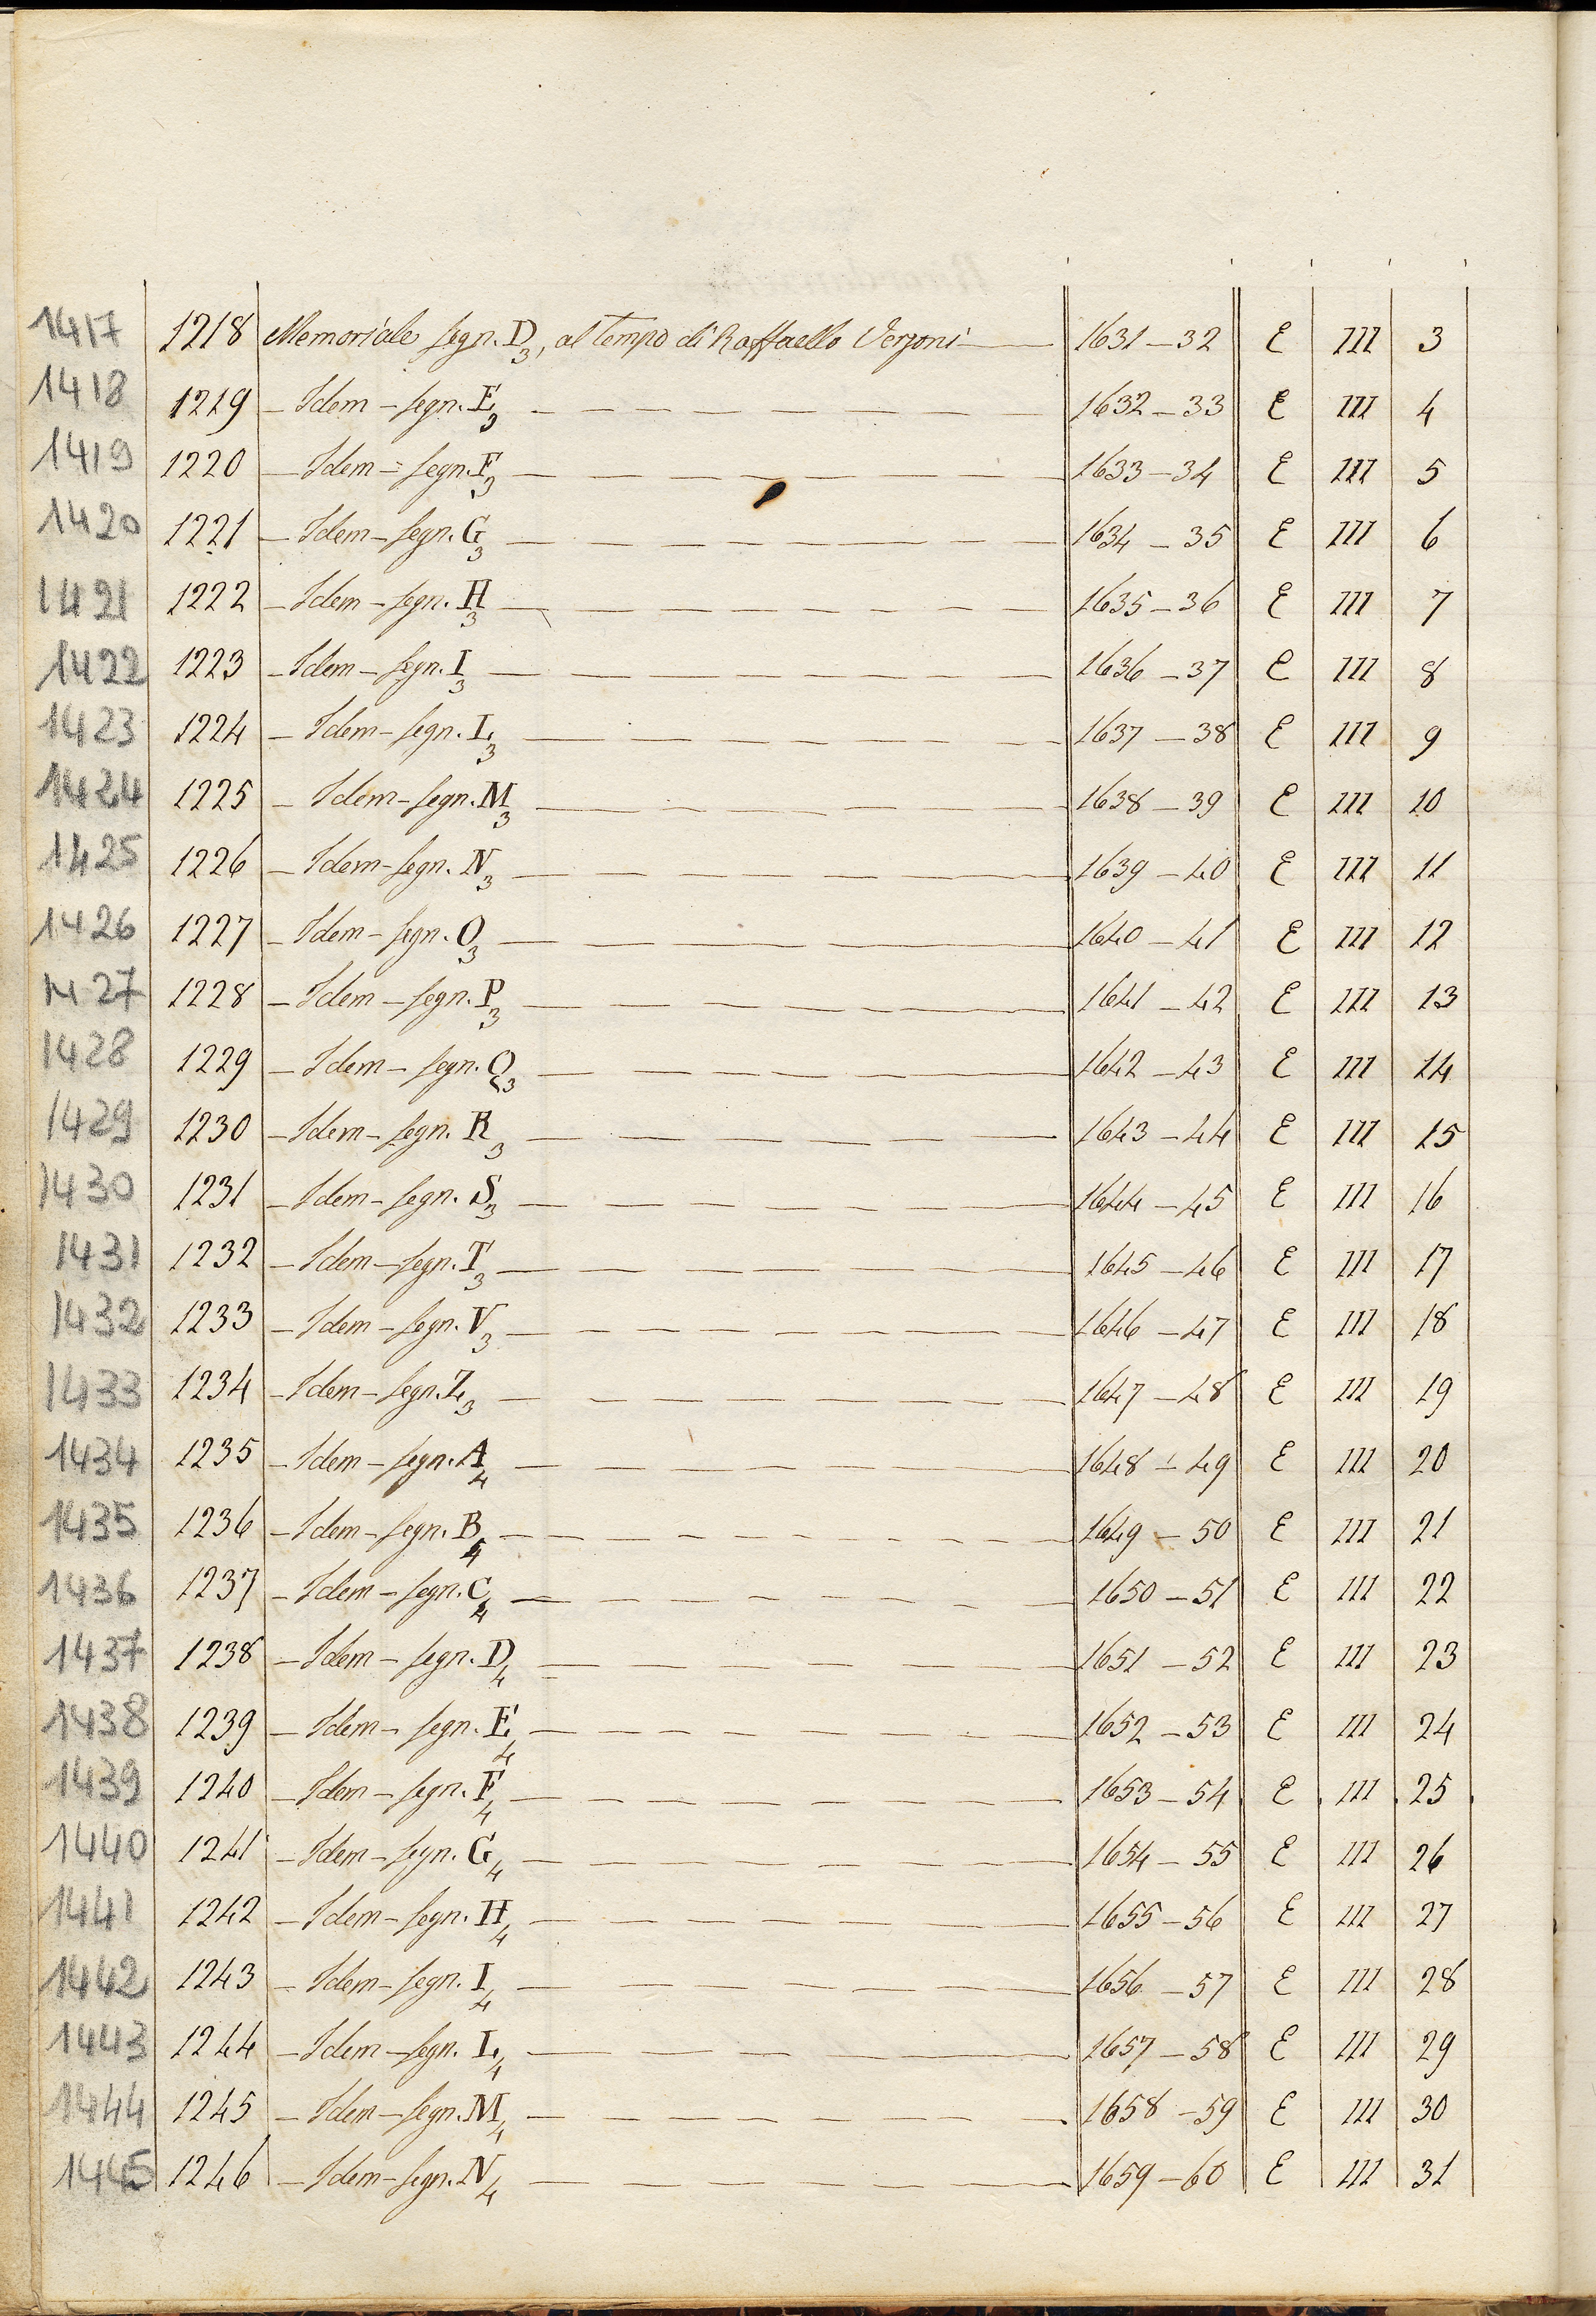 1417 1218 Memoriale segn. D3, al tempo di Raffaello Verzoni 1631-32 E III 3
1418 1219 - Idem - segn. E3 1632-33 E III 4
1419 1220 - Idem - segn. F3 1633-34 E III 5
1420 1221 - Idem - segn. G3 1634-35 E III 6
1421 1222 - Idem - segn. H3 1635-36 E III 7
1422 1223 - Idem - segn. I3 1636-37 E III 8
1423 1224 - Idem - segn. L3 1637-38 E III 9
1424 1225 - Idem - segn. M3 1638-39 E III 10
1425 1226 - Idem - segn. N3 1639-40 E III 11
1426 1227 - Idem - segn. O3 1640-41 E III 12
1427 1228 - Idem - segn. P3 1641-42 E III 13
1428 1229 - Idem - segn. Q3 1642-43 E III 14
1429 1230 - Idem - segn. R3 1643-44 E III 15
1430 1231 - Idem - segn. S3 1644-45 E III 16
1431 1232 - Idem - segn. T3 1645-46 E III 17
1432 1233 - Idem - segn. V3 1646-47 E III 18
1433 1234 - Idem - segn. Z3 1647-48 E III 19
1434 1235 - Idem - segn. A4 1648-49 E III 20
1435 1236 - Idem - segn. B4 1649-50 E III 21
1436 1237 - Idem - segn. C4 1650-51 E III 22
1437 1238 - Idem - segn. D4 1651-52 E III 23
1438 1239 - Idem - segn. E4 1652-53 E III 24
1439 1240 - Idem - segn. F4 1653-54 E III 25
1440 1241 - Idem - segn. G4 1654-55 E III 26
1441 1242 - Idem - segn. H4 1655-56 E III 27
1442 1243 - Idem - segn. I4 1656-57 E III 28
1443 1244 - Idem - segn. L4 1657-58 E III 29
1444 1245 - Idem - segn. M4 1658-59 E III 30
1445 1246 - Idem - segn. N4 1659-60 E III 31